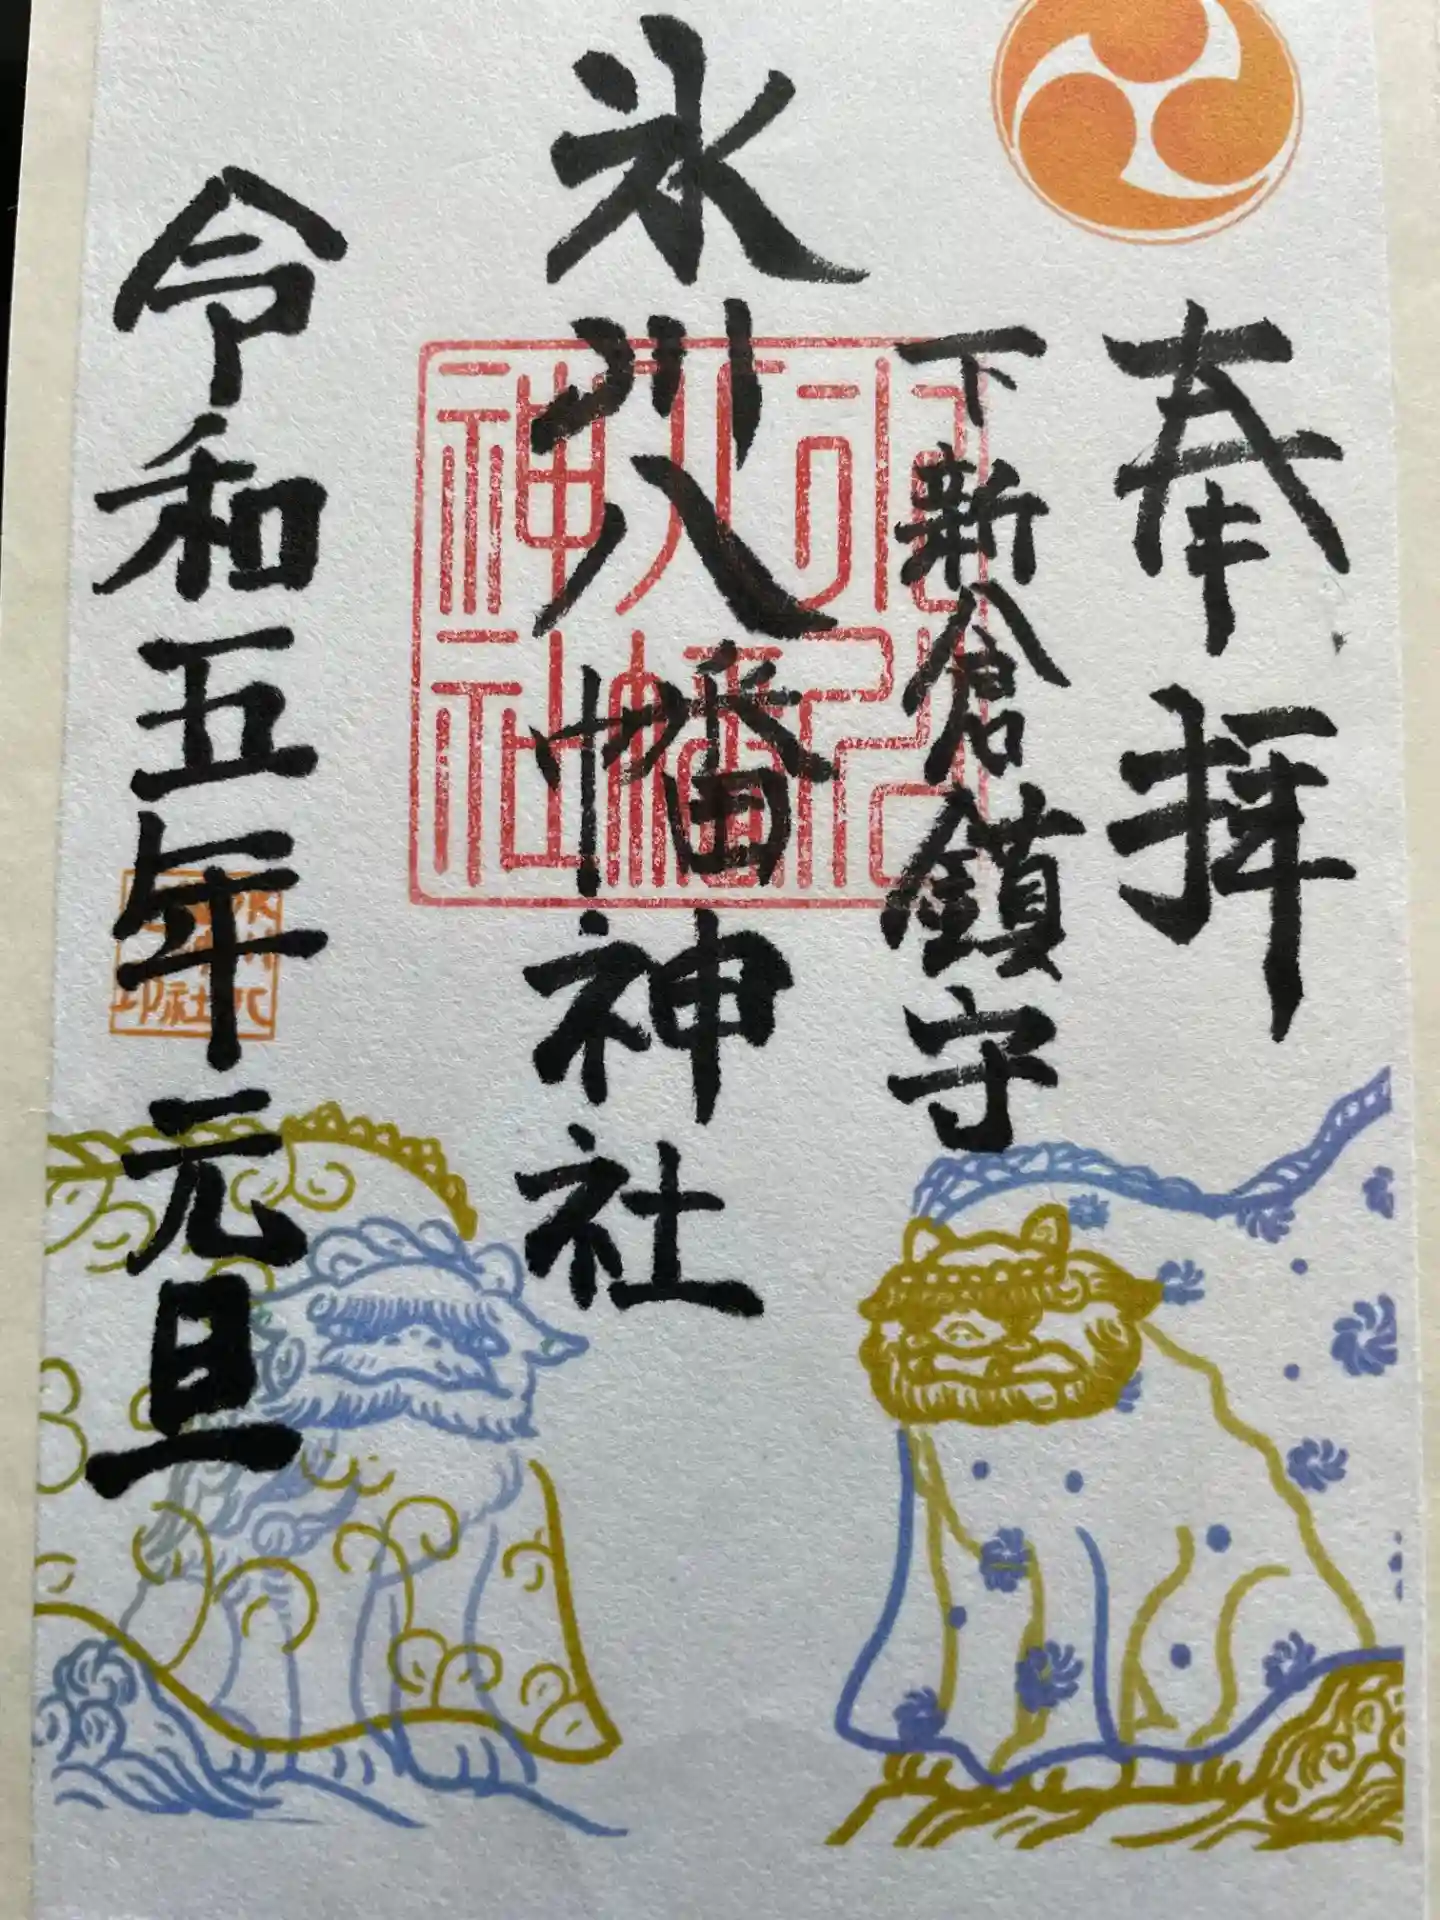 奉拝
下新倉鎮守
氷川八幡神社
令和五年元旦
氷川八幡神社